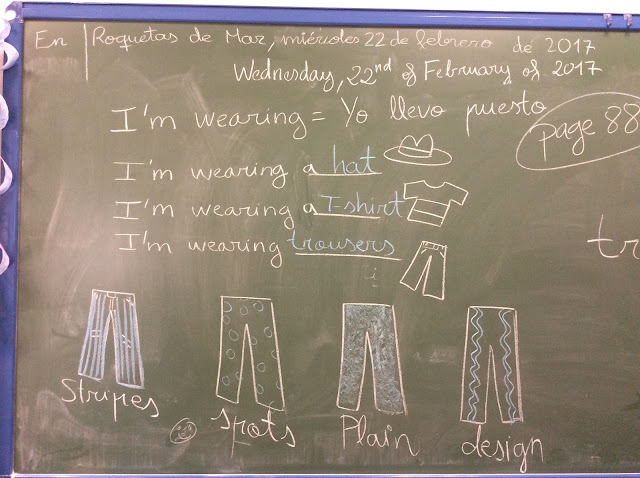 En | Roquetas de Mar, miércoles 22 de febrero de 2017
Wednesday, 22nd of February of 2017
I'm wearing = Yo llevo puesto
page 88
I'm wearing a hat
I'm wearing a T-shirt
I'm wearing trousers
tr
Stripes
spots
Plain
design